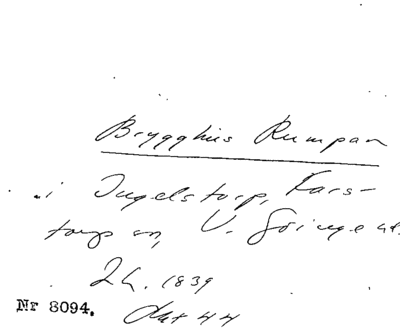 Brygghus Rumpan
i Ingelstorp, Fars-
torp sn, V. Göinge hd.
Lh. 1839
Nr 8094.